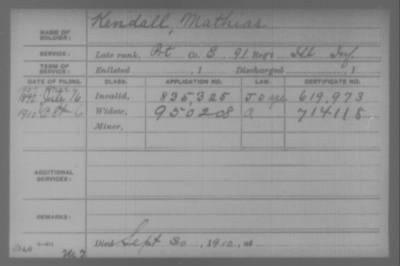 NAME OF SOLDIER: Kendall, Mathias
SERVICE: Late rank, Pt Co. B, 91 Reg't Ill Inf.
TERM OF SERVICE: Enlisted , 1 Discharged , 1
DATE OF FILING. CLASS. APPLICATION NO. LAW. CERTIFICATE NO.
1892 July 16 Invalid, 835,325 619,973
1910 Oct 6 Widow, 950208 714118
Minor,
ADDITIONAL SERVICES:
REMARKS:
Died Sept 30, 1910, at